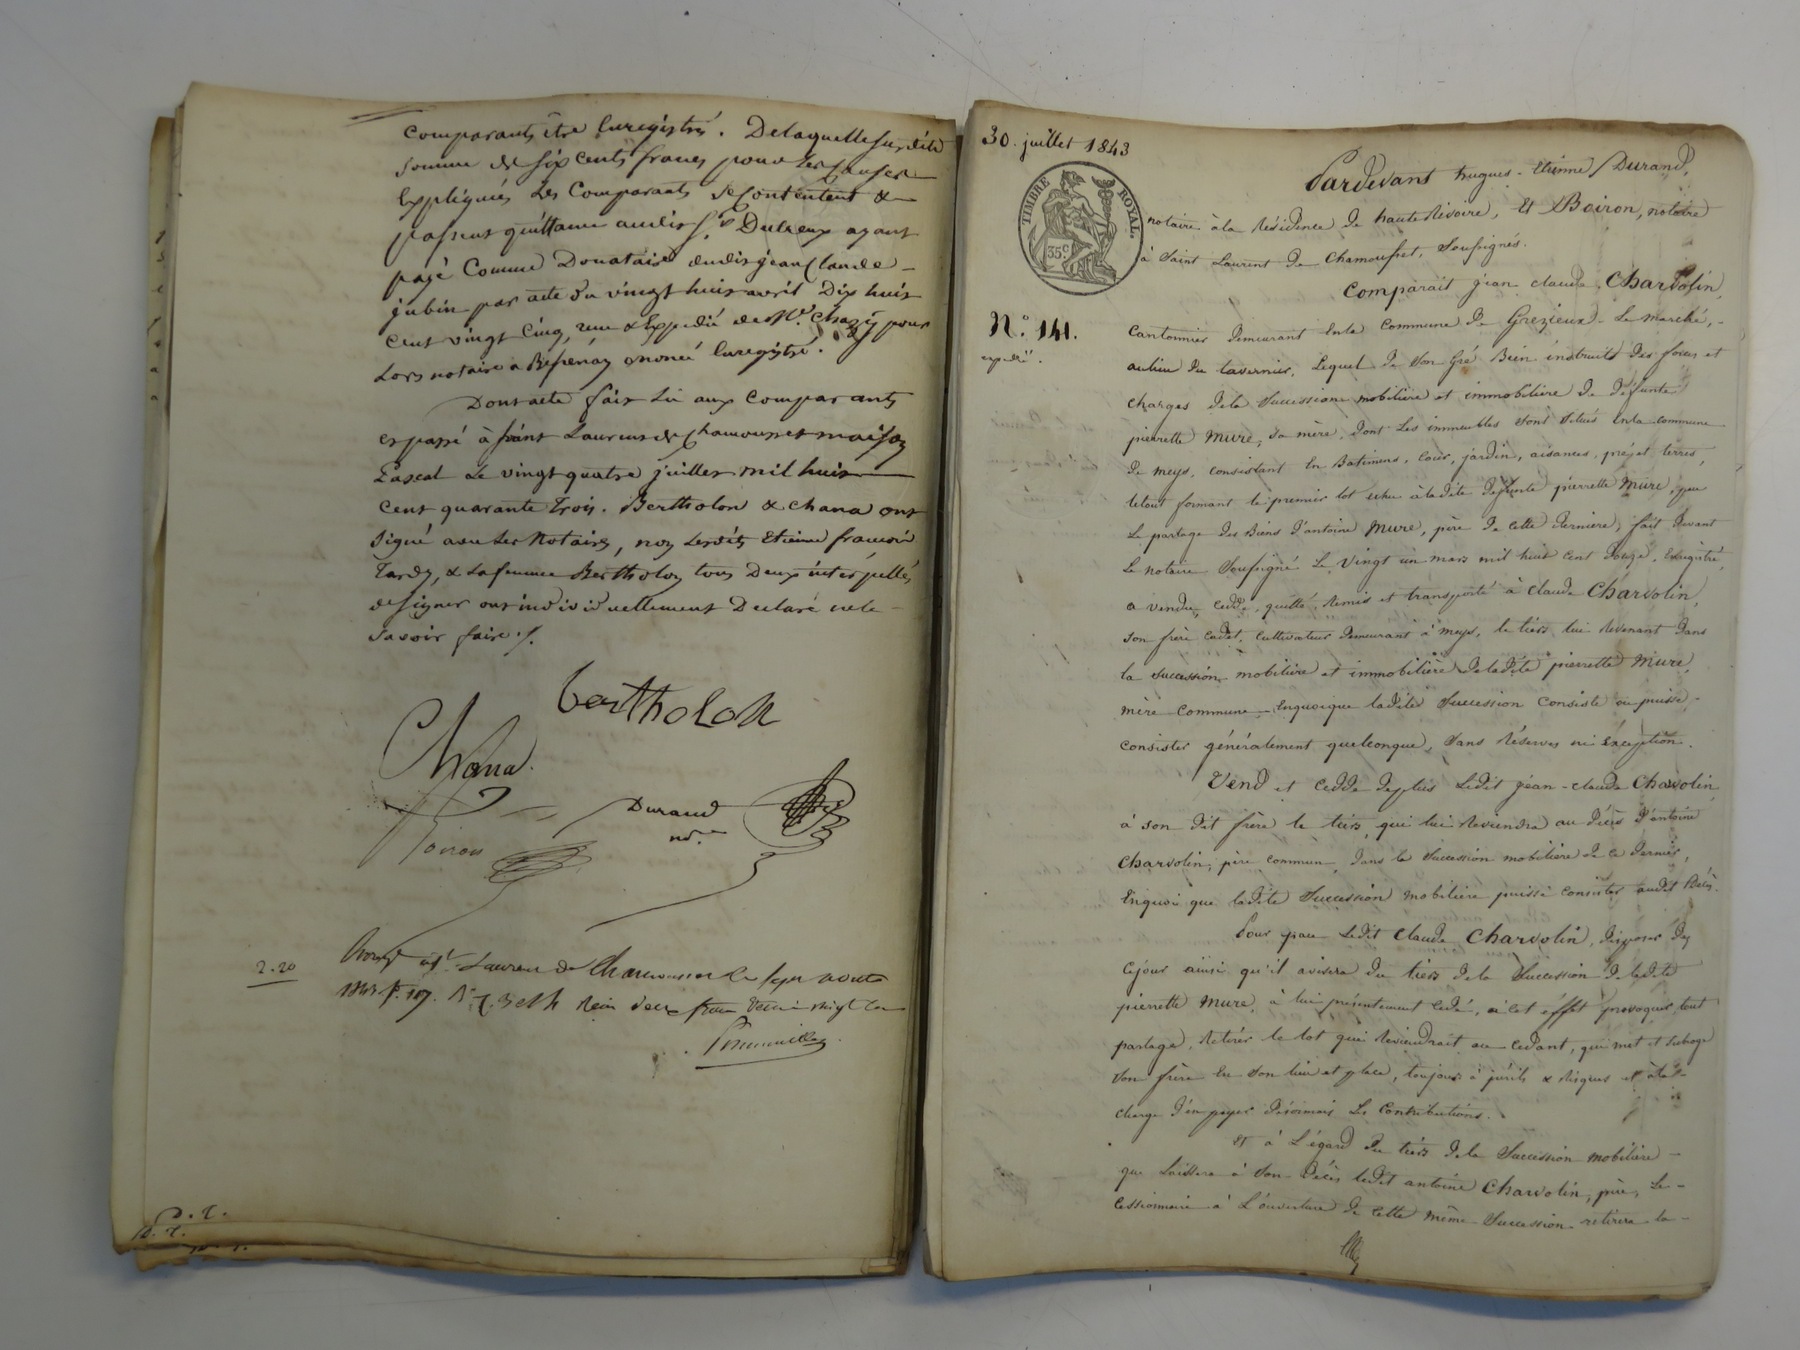 comparants être Enregistré. De laquelle susdite
somme de six cents francs pour les causes
Expliquées Les Comparants se contentent &
passent quittance audit Sr. Ducreux ayant
payé Comme Donataire dudit jean claude
jubin par acte du vingt huit avril Dix huit
cent vingt cinq, reçu & Expédié de Me. pour
Lors notaire a Bessenay enoncé Enregistré.
Dont acte fait Lu aux comparants
et passé à saint Laurent de chamousset maison
Pascal Le vingt quatre juillet mil huit
cent quarante trois. Bertholon & chana ont
signé avec Les Notaires, non Lesdits Etienne francois
Tardy, & La femme Bertholon tous Deux interpellés
de signer ont individuellement Declaré ne le
savoir faire ./.
bertholon
Chana
Durand
nore
Boiron
2.20
St. Laurent de Chamousset le sept aout
1843 f. 107. Reçu deux francs vingt
D. R.
D. R.
30. juillet 1843
TIMBRE ROYAL.
35c
Pardevant hugues-Etienne Durand,
notaire à la Résidence de hauterivoire, Et Boiron, notaire
à Saint Laurent de Chamousset, Soussignés.
Comparait jean claude Charvolin,
No. 141.
expedié.
cantonnier Demeurant En la commune de Grezieux-Le marché,
au lieu du tavernier, Lequel de Son Gré Bien instruit des forces et
charges de la Succession mobilière et immobilière de défunte
pierrette Mure, Sa mère, dont Les immeubles Sont Situés En la commune
de meys, consistant En Batimens, Cour, jardin, aisances, prés et terres,
le tout formant le premier lot echu à ladite Défunte pierrette Mure, par
Le partage des Biens d'antoine Mure, père de cette Dernière, fait Devant
Le notaire Soussigné Le Vingt un mars mil huit cent Douze, Enregistré,
a vendu, cédé, quitté, Remis et transporté à Claude Charvolin,
Son frère cadet, cultivateur demeurant à meys, le tiers lui Revenant dans
la succession mobilière et immobilière de ladite pierrette Mure,
mère commune, En quoique ladite Succession Consiste ou puisse,
consister généralement quelconque, Sans Réserves ni Exception.
Vend et Cedde de plus Ledit jean-claude Charvolin
à son dit frère le tiers, qui lui Reviendra au décès d'antoine
Charvolin, père commun, dans la Succession mobilière de ce dernier,
En quoi que ladite Succession mobilière puisse consister audit Décès.
Pour par Ledit Claude Charvolin, disposer dès
ce jour ainsi qu'il avisera du tiers de la Succession de ladite
pierrette Mure, à lui présentement Cédé, à cet éffet provoquer tout
partage, Retirer le lot qui Reviendrait au Cédant, qui met et Subroge
Son frère En Son lieu et place, toujours à périls & Risques et à la
charge d'en payer désormais Les Contributions.
Et à L'égard du tiers de la Succession mobilière
que Laissera à Son Décès ledit antoine Charvolin, père, Le
Cessionnaire à L'ouverture de Cette même Succession retirera la